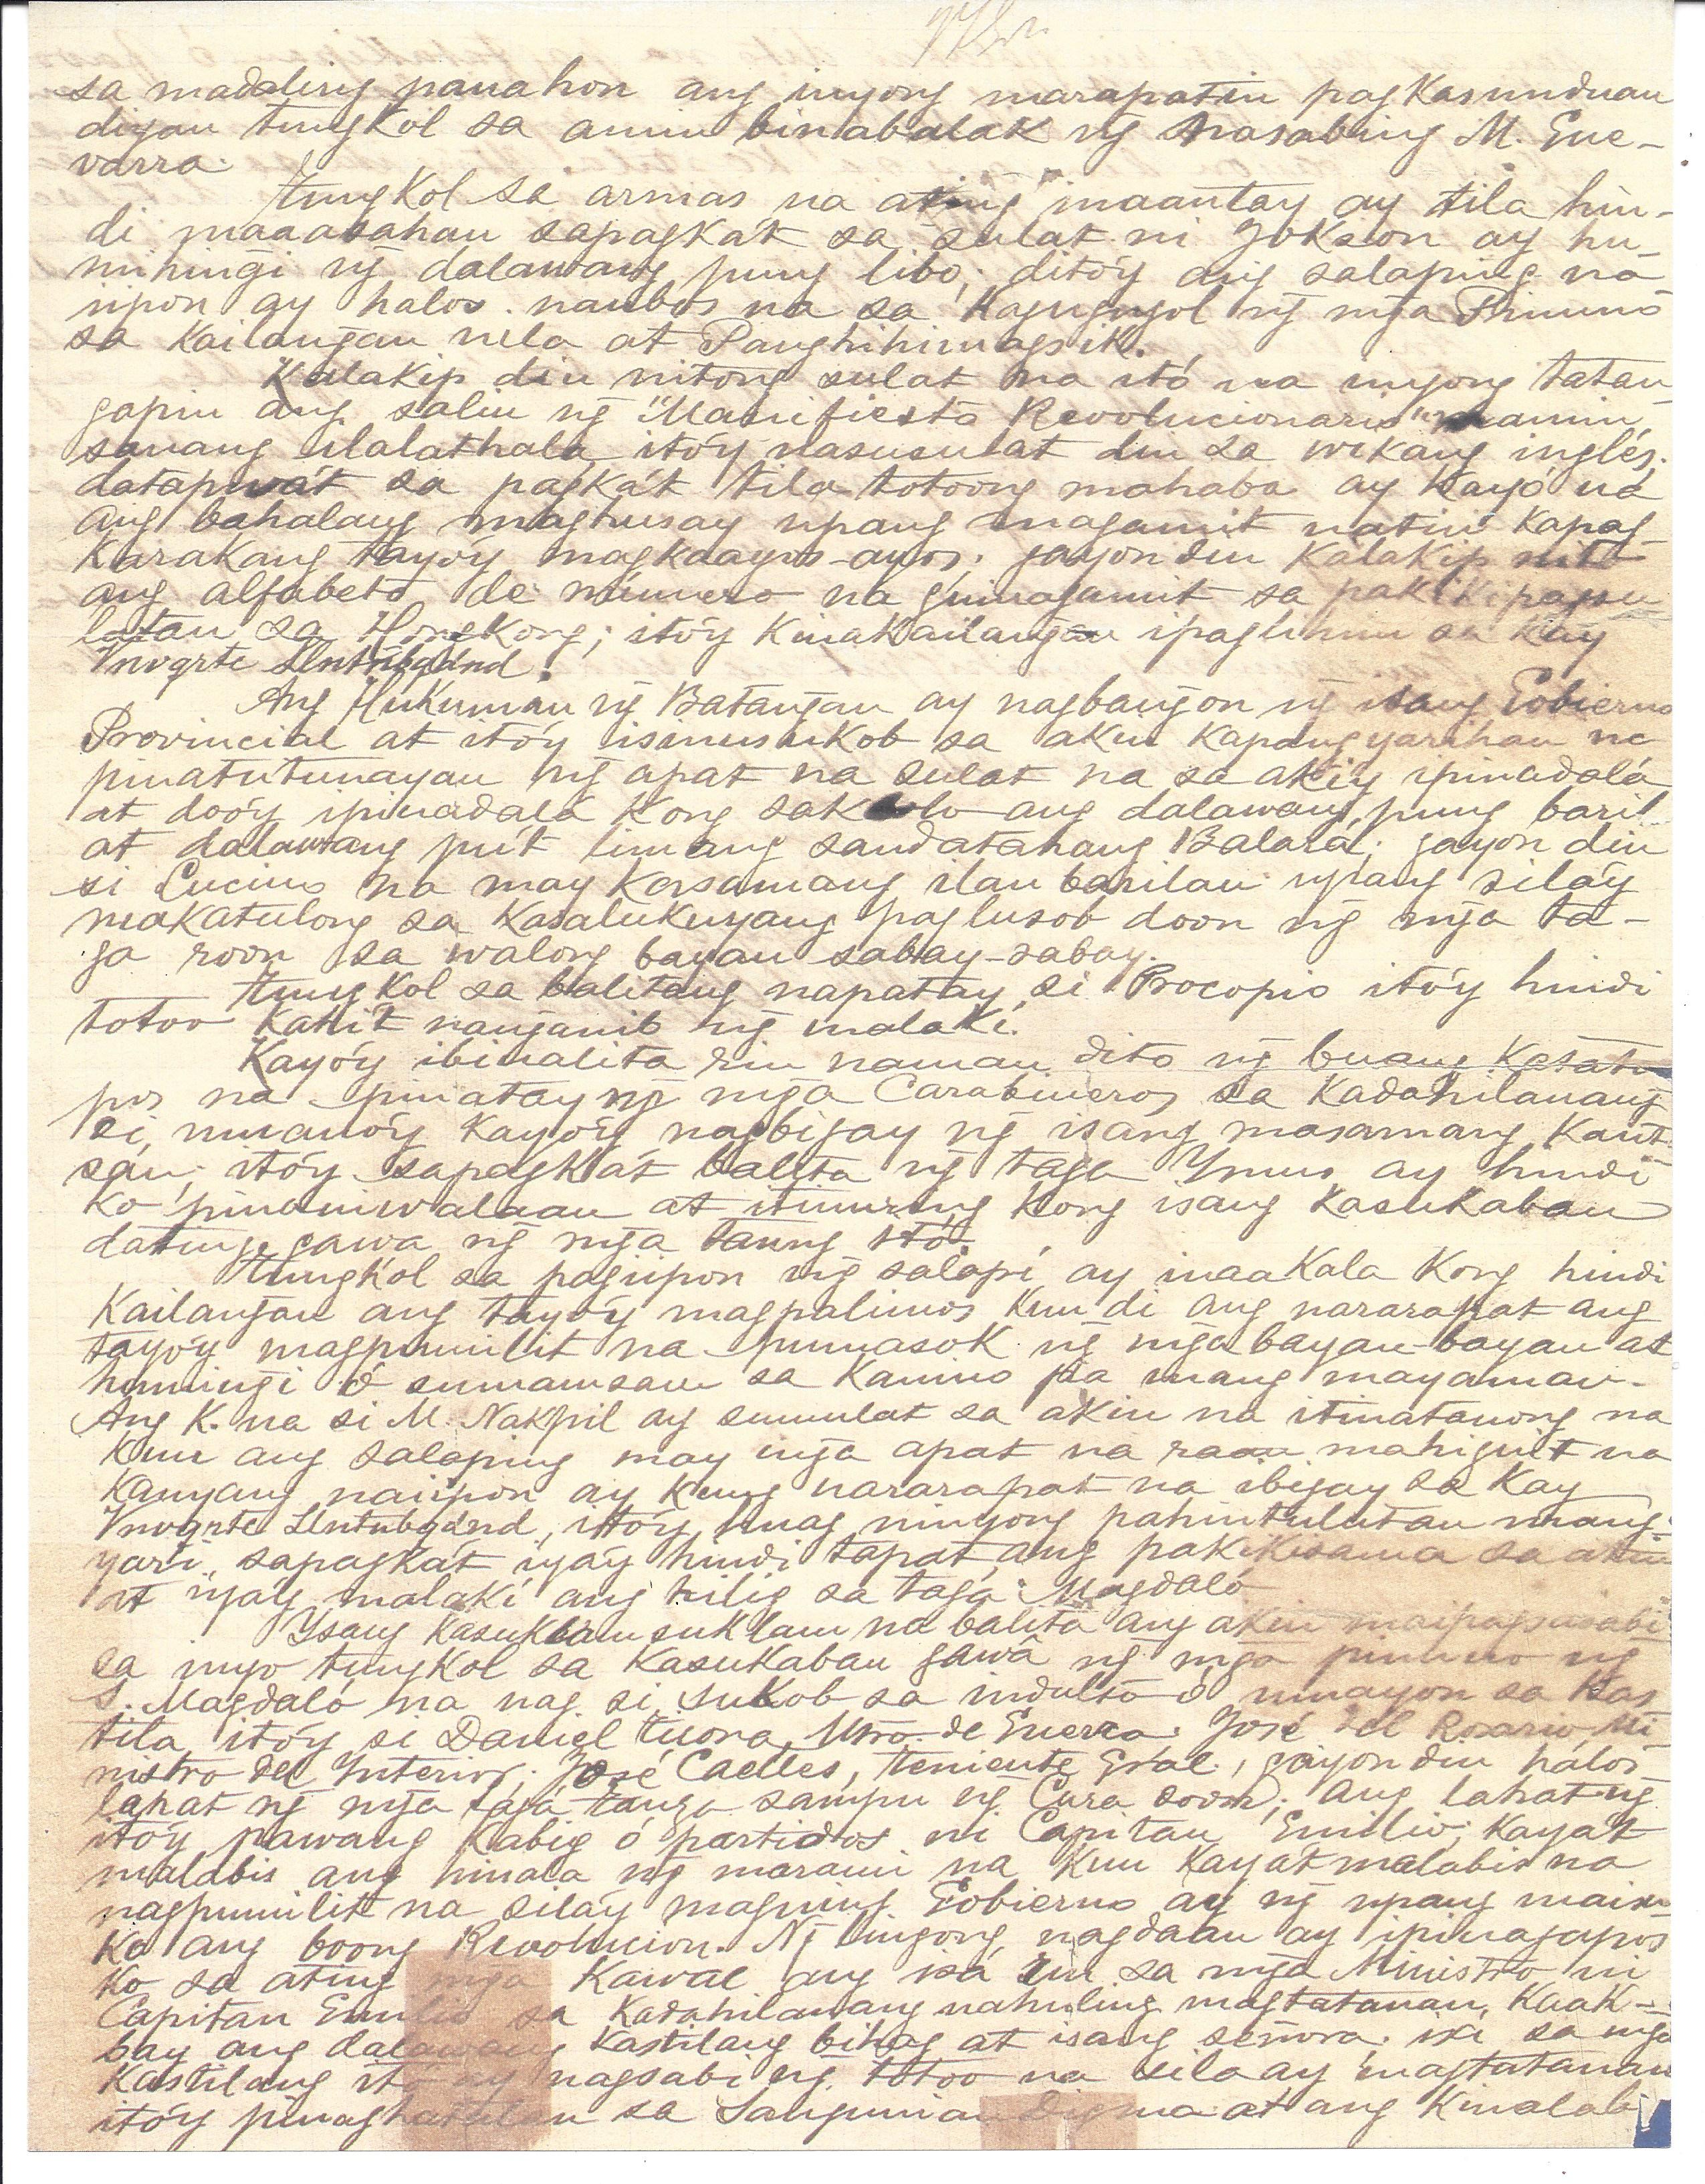 sa madaling panahon ang inyong marapatin pagkasunduan
diyan tungkol sa amin binabalak ng nasabing M. Gue-
varra.
tungkol sa armas na ating inaantay ay tila hin-
di maaasahan sapagkát sa sulat ni Jokson ay hu-
mihingi ng dalawang pung libo; ditóy ang salaping na
iipon ay halos naubos na sa Kagugugol ng mga Pinunò
sa Kailangan nila at Panghihimagsik.
Kalakip din nitong sulat na itó na inyong tatan-
gapin ang salin ng "Manifiesto Revolucionario" na amin
sanang ilalathala, itóy nasusulat din sa wikang inglés;
datapwát sa pagkát tila totoong mahaba ay Kayó na
ang bahalang maghusay upang magamit natin Kapag-
Karakang tayóy magkaayos-ayos; gayon din Kalakip nito
ang alfabeto de número na ginagamit sa pakikipagsu
latan sa Hongkong; itóy Kinakailangan ipaglihim sa Kay
Vnvgrte Llntubgdnd.
Ang Hukuman ng Batangan ay nagbangon ng isang Gobierno
Provincial at itóy isinusukob sa akin Kapangyarihan na
pinatutunayan ng apat na sulat na sa akiy ipinadalá
at doóy ipinadalá Kong saklolo ang dalawang pung baril
at dalawang pút limang sandatahang Balara; gayon din
si Lucino na may Kasamang ilan barilan upang siláy
makatulong sa Kasalukuyang paglusob doon ng mga ta-
ga roon sa walong bayan sabay-sabay.
tungkol sa balitang napatay si Procopio itóy hindi
totoo Kahit nanganib ng malaki.
Kayóy ibinalita rin naman dito ng buang Katata
pos na pinatay ng mga Carabineros sa Kadahilanang
di umanóy Kayóy nagbigay ng isang masamang Kaut
sán; itóy sapagkát balita ng taga Ymus ay hindi
ko pinaniwalaan at itinuring Kong isang Kasukaban
dating gawa ng mga taong itó.
Tungkol sa pagiipon ng salapí ay inaakala Kong hindi
Kailangan ang tayóy magpalimos Kun di ang nararapat ang
tayóy magpumilit na pumasok ng mga bayan-bayan at
humingi ó sumamsam sa Kanino pa mang mayaman.
Ang K. na si M. Nakpil ay sumulat sa akin na itinatanong na
Kun ang salaping may mga apat na raan mahiguit na
Kanyang naiipon ay Kung nararapat na ibigay sa Kay
Vnvgrte Llntubgdnd, itóy huag ninyong pahintulutan mang-
yari, sapagkát iyáy hindi tapat ang pakikisama sa atin
at iyáy malaki ang hilig sa taga Magdaló
Ysang Kasuklamsuklam na balita ang aking maipagsasabi
sa inyo tungkol sa Kasukaban gawâ ng mga pinuno ng
S. Magdaló na nag si sukob sa indulto ó umayon sa Kas
tila, itóy si Daniel tirona, Mtro. de Guerra; José del Rosario, Mi
nistro del Interior; José Caelles, teniente Gral, gayon din halos
lahat ng mga taga tanza sampu ng Cura doon; ang lahat ng
itóy pawang Kabig ó partidos ni Capitan Emilio; Kayát
malabis ang hinala ng marami na Kun Kayat malabis na
nagpumilit na siláy maguing Gobierno ay ng upang maisu
Ko ang boong Revolucion. Ng lingong nagdaan ay ipinagapos
Ko sa ating mga Kawal ang isá rin sa mga Ministro ni
Capitan Emilio sa Kadahilanang nahuling magtatanan, Kaak-
bay ang dalawang Kastilang bihag at isang señora; isá sa mga
Kastilang itó ay nagsabi ng totoo na sila ay magtatanan
itóy pinaghatulan sa Sanguniang Digma at ang Kinalab